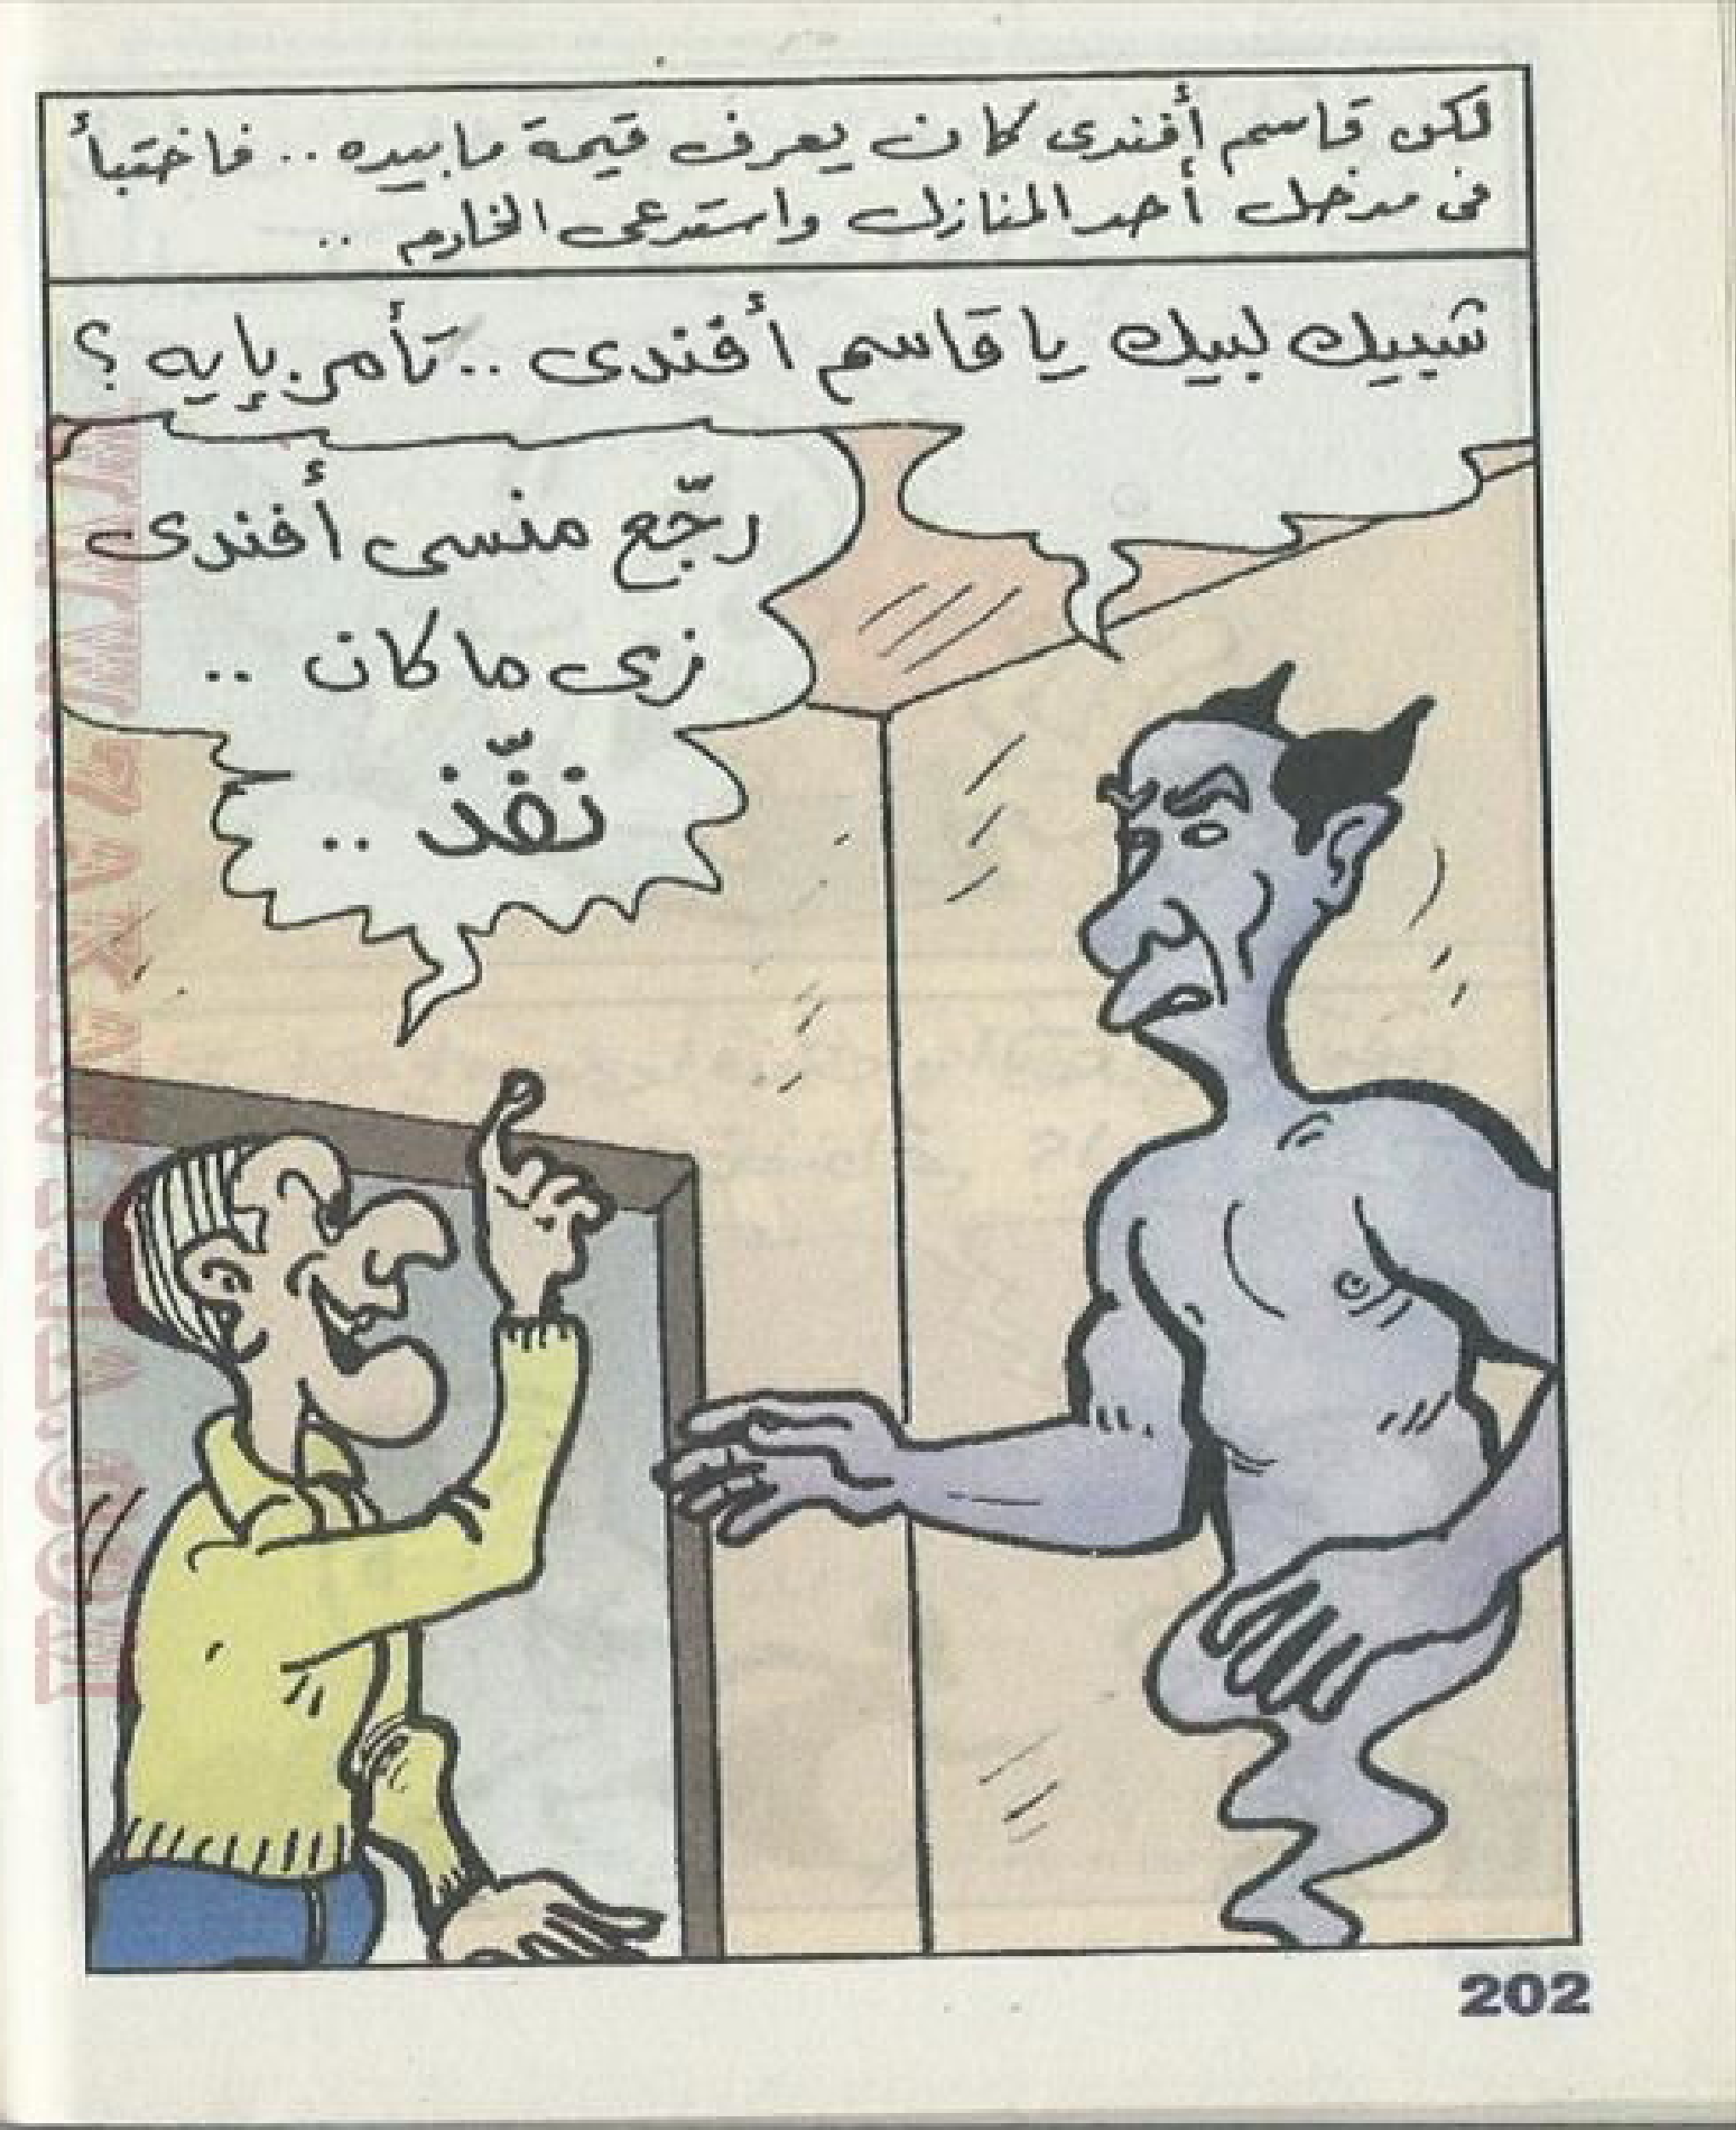 لكن قاسم أفندى كان يعرف قيمة ما بيده .. فاختبأ
فى مدخل أحد المنازل واستدعى الخادم ..
شبيك لبيك يا قاسم أفندى .. تأمر بإيه ؟
رجّع منسى أفندى
زى ما كان ..
نفّذ ..
202